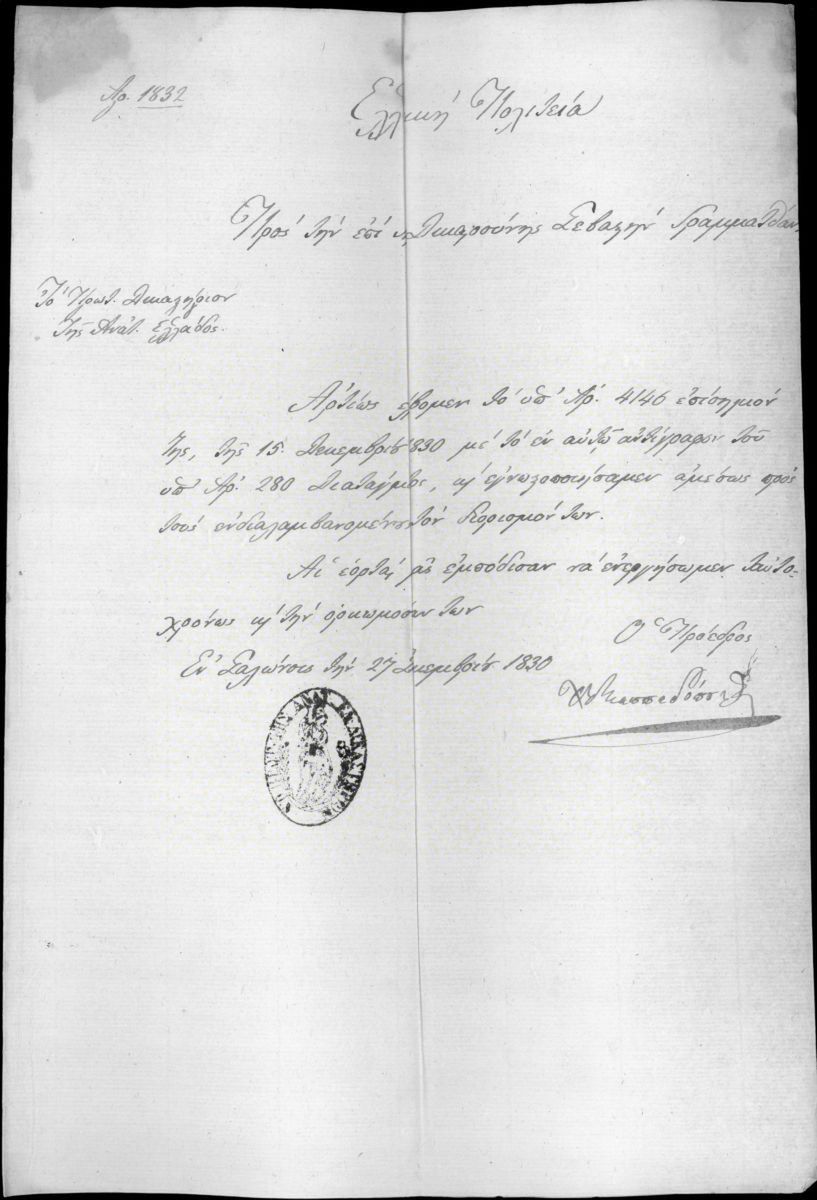 Αρ. 1832
Ελλ.κή Πολιτεία
Πρός τήν επί της Δικαιοσύνης Σεβαστήν Γραμματείαν
Τό Πρωτ. Δικαστήριον
Της Ανατ. Ελλάδος.
Αρτίως ελάβομεν τό υπ' Αρ. 4146 επίσημόν
της, της 15 Δεκεμβρίου 830 με τό εν αυτώ αντίγραφον του
υπ' Αρ. 280 Διατάγματος, και εγνωστοποιήσαμεν αμέσως πρός
τους ενδιαλαμβανομένους τόν διορισμόν των.
Αι εορταί μας εμπόδισαν νά ενεργήσωμεν ταυτο-
χρόνως και τήν ορκωμοσίαν των
Ο Πρόεδρος
Εν Σαλώνοις τήν 27 Δεκεμβρίου 1830